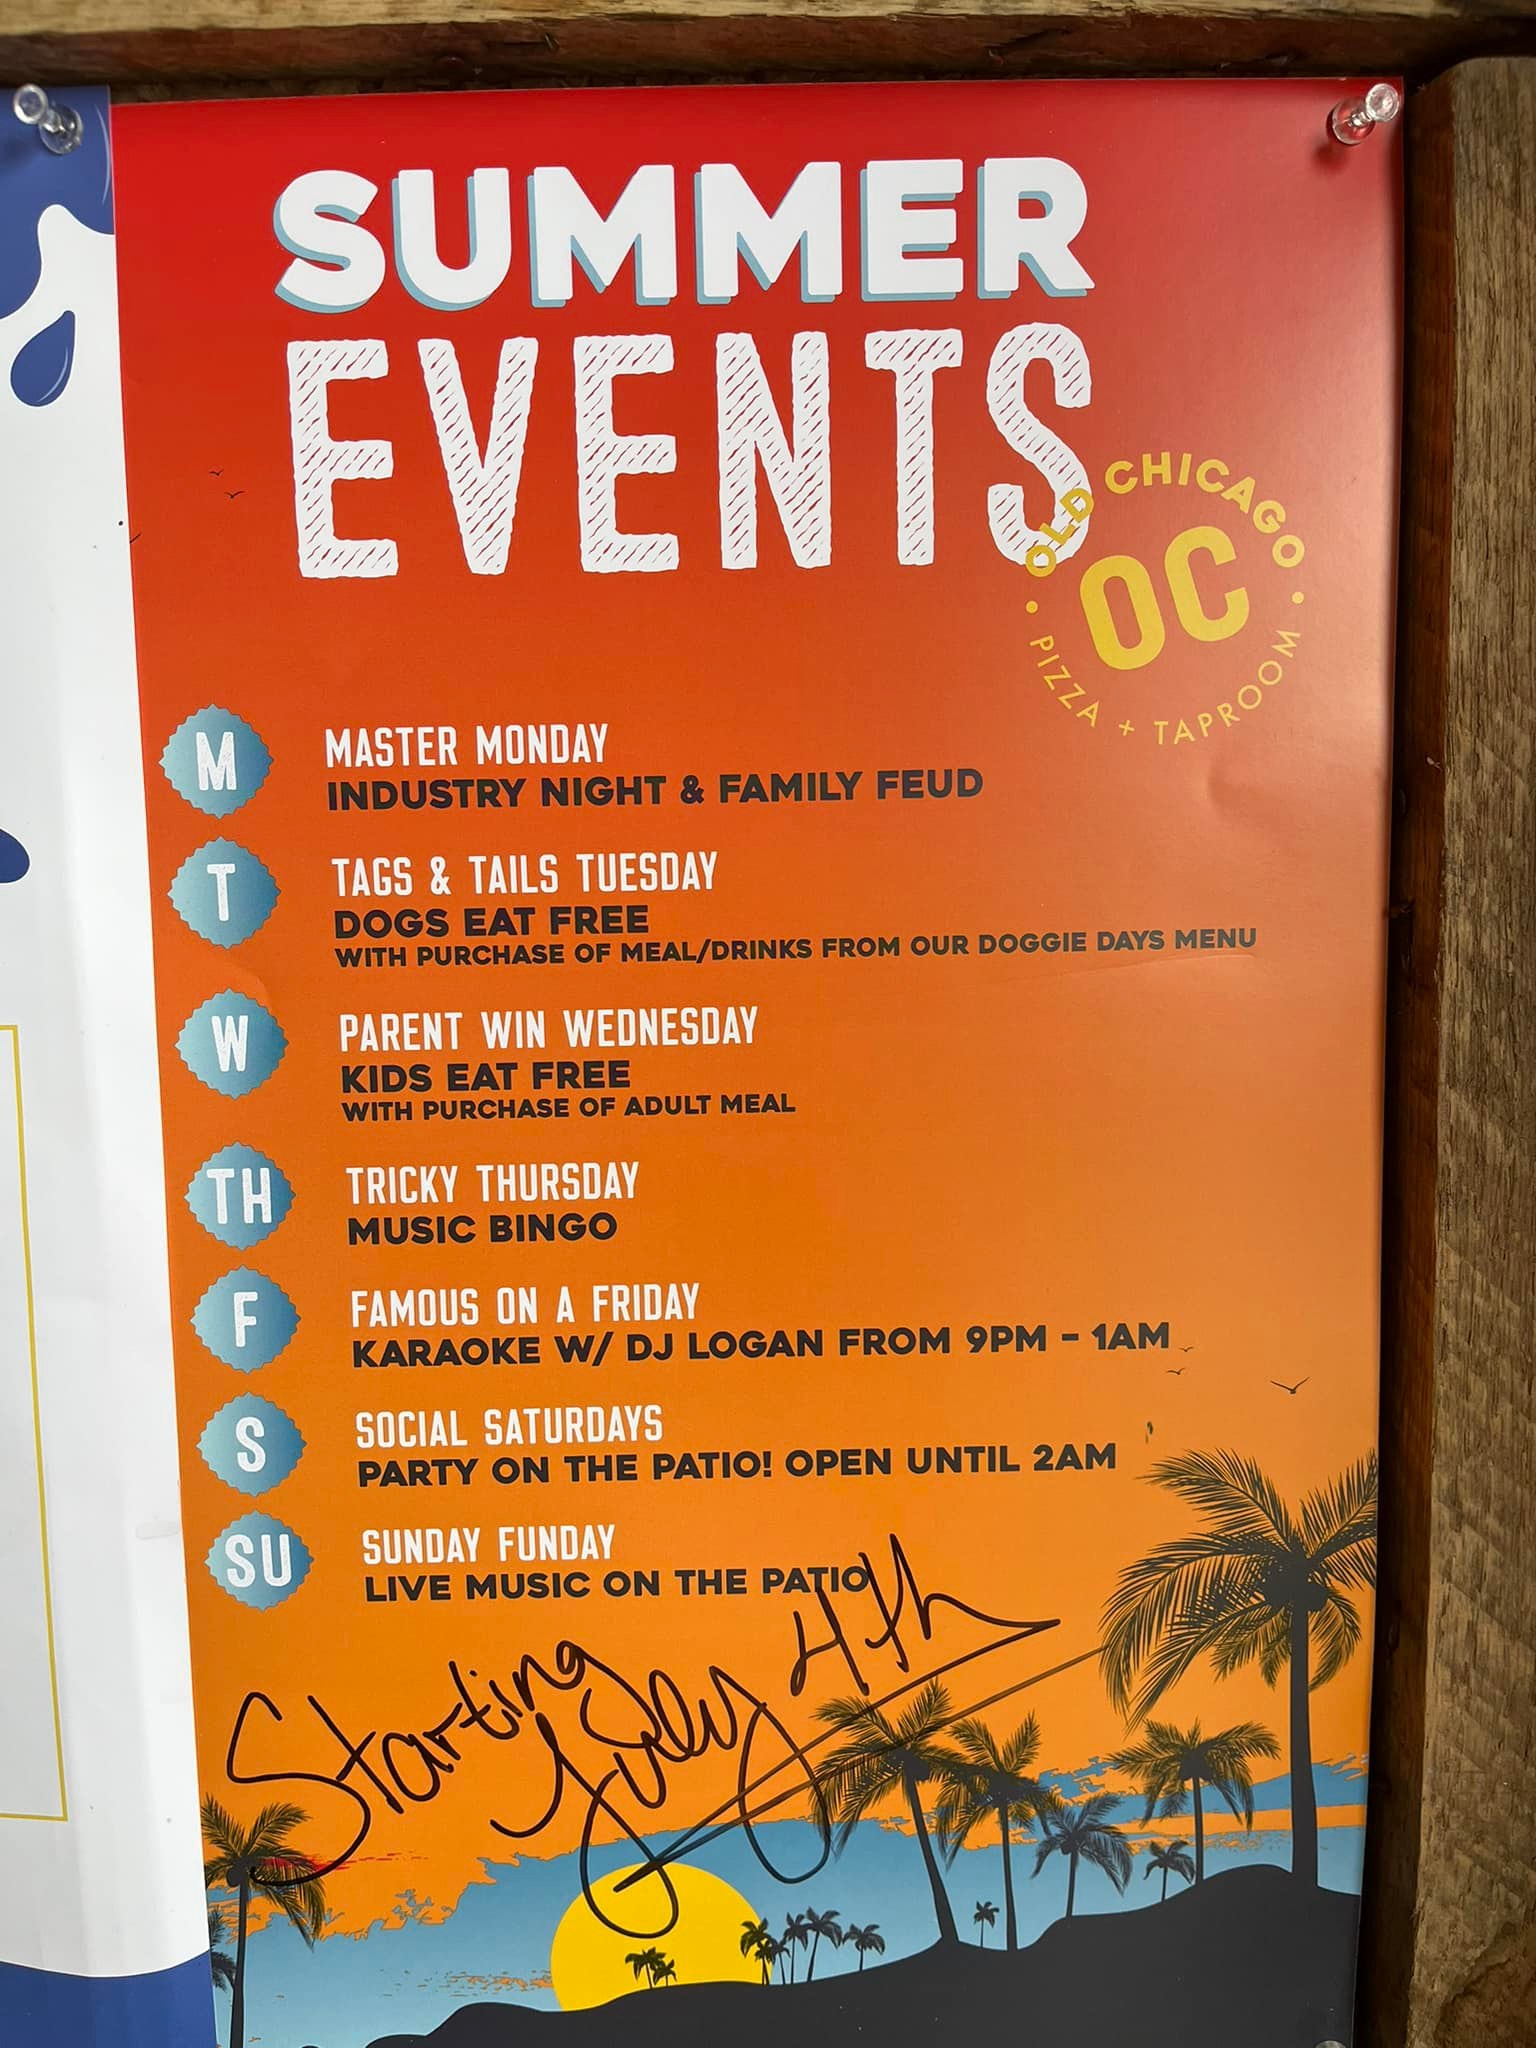 SUMMER
EVENTS
OLD CHICAGO
OC
PIZZA + TAPROOM
M
MASTER MONDAY
INDUSTRY NIGHT & FAMILY FEUD
T
TAGS & TAILS TUESDAY
DOGS EAT FREE
WITH PURCHASE OF MEAL/DRINKS FROM OUR DOGGIE DAYS MENU
W
PARENT WIN WEDNESDAY
KIDS EAT FREE
WITH PURCHASE OF ADULT MEAL
TH
TRICKY THURSDAY
MUSIC BINGO
F
FAMOUS ON A FRIDAY
KARAOKE W/ DJ LOGAN FROM 9PM – 1AM
S
SOCIAL SATURDAYS
PARTY ON THE PATIO! OPEN UNTIL 2AM
SU
SUNDAY FUNDAY
LIVE MUSIC ON THE PATIO
Starting July 4th